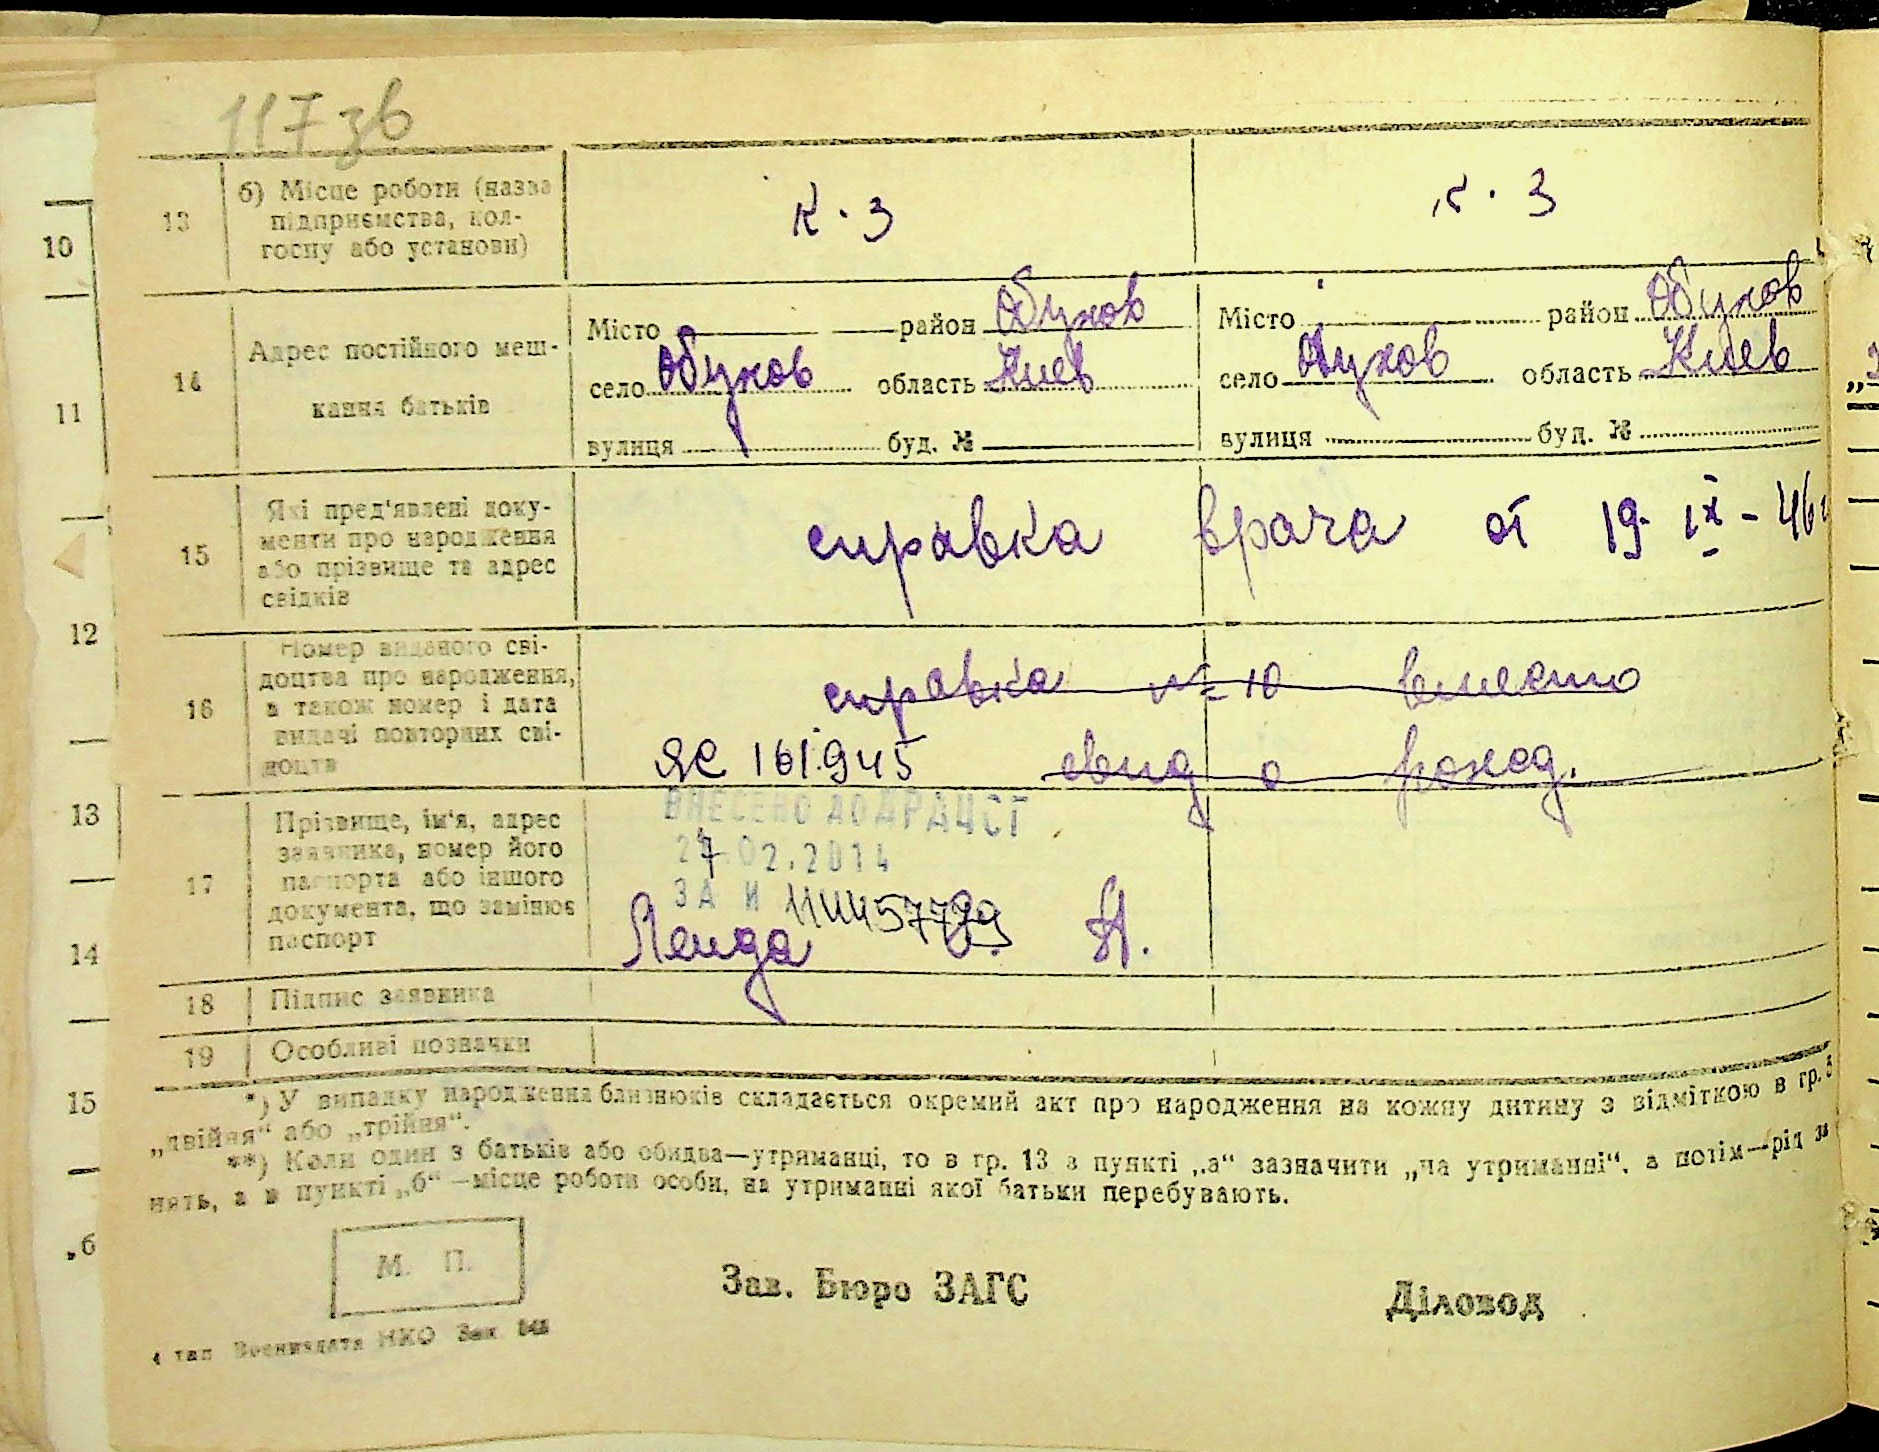 117 зв
13
б) Місце роботи (назва
підприємства, кол-
госпу або установи)
К. З
К. З
14
Адрес постійного меш-
кання батьків
Місто район Обухов
село Обухов область Киев
вулиця буд. №
Місто район Обухов
село Обухов область Киев
вулиця буд. №
15
Які пред'явлені доку-
менти про народження
або прізвище та адрес
свідків
справка врача от 19. IX - 46 г
16
Номер виданого сві-
доцтва про народження,
а також номер і дата
видачі повторних сві-
доцтв
справка № 10 вместо
ЯЄ 161945 свид о рожд.
17
Прізвище, ім'я, адрес
заявника, номер його
паспорта або іншого
документа, що замінює
паспорт
ВНЕСЕНО ДО ДРАЦСГ
27.02.2014
ЗА И
Ленда А.
18
Підпис заявника
19
Особливі позначки
*) У випадку народження близнюків складається окремий акт про народження на кожну дитину з відміткою в гр. 5
„двійня“ або „трійня“.
**) Коли один з батьків або обидва—утриманці, то в гр. 13 в пункті „а“ зазначити „на утриманні“, а потім—рід за
нять, а в пункті „б“ —місце роботи особи, на утриманні якої батьки перебувають.
М. П.
Зав. Бюро ЗАГС
Діловод
4 тип Воениздата НКО Зак.
10
11
12
13
14
15